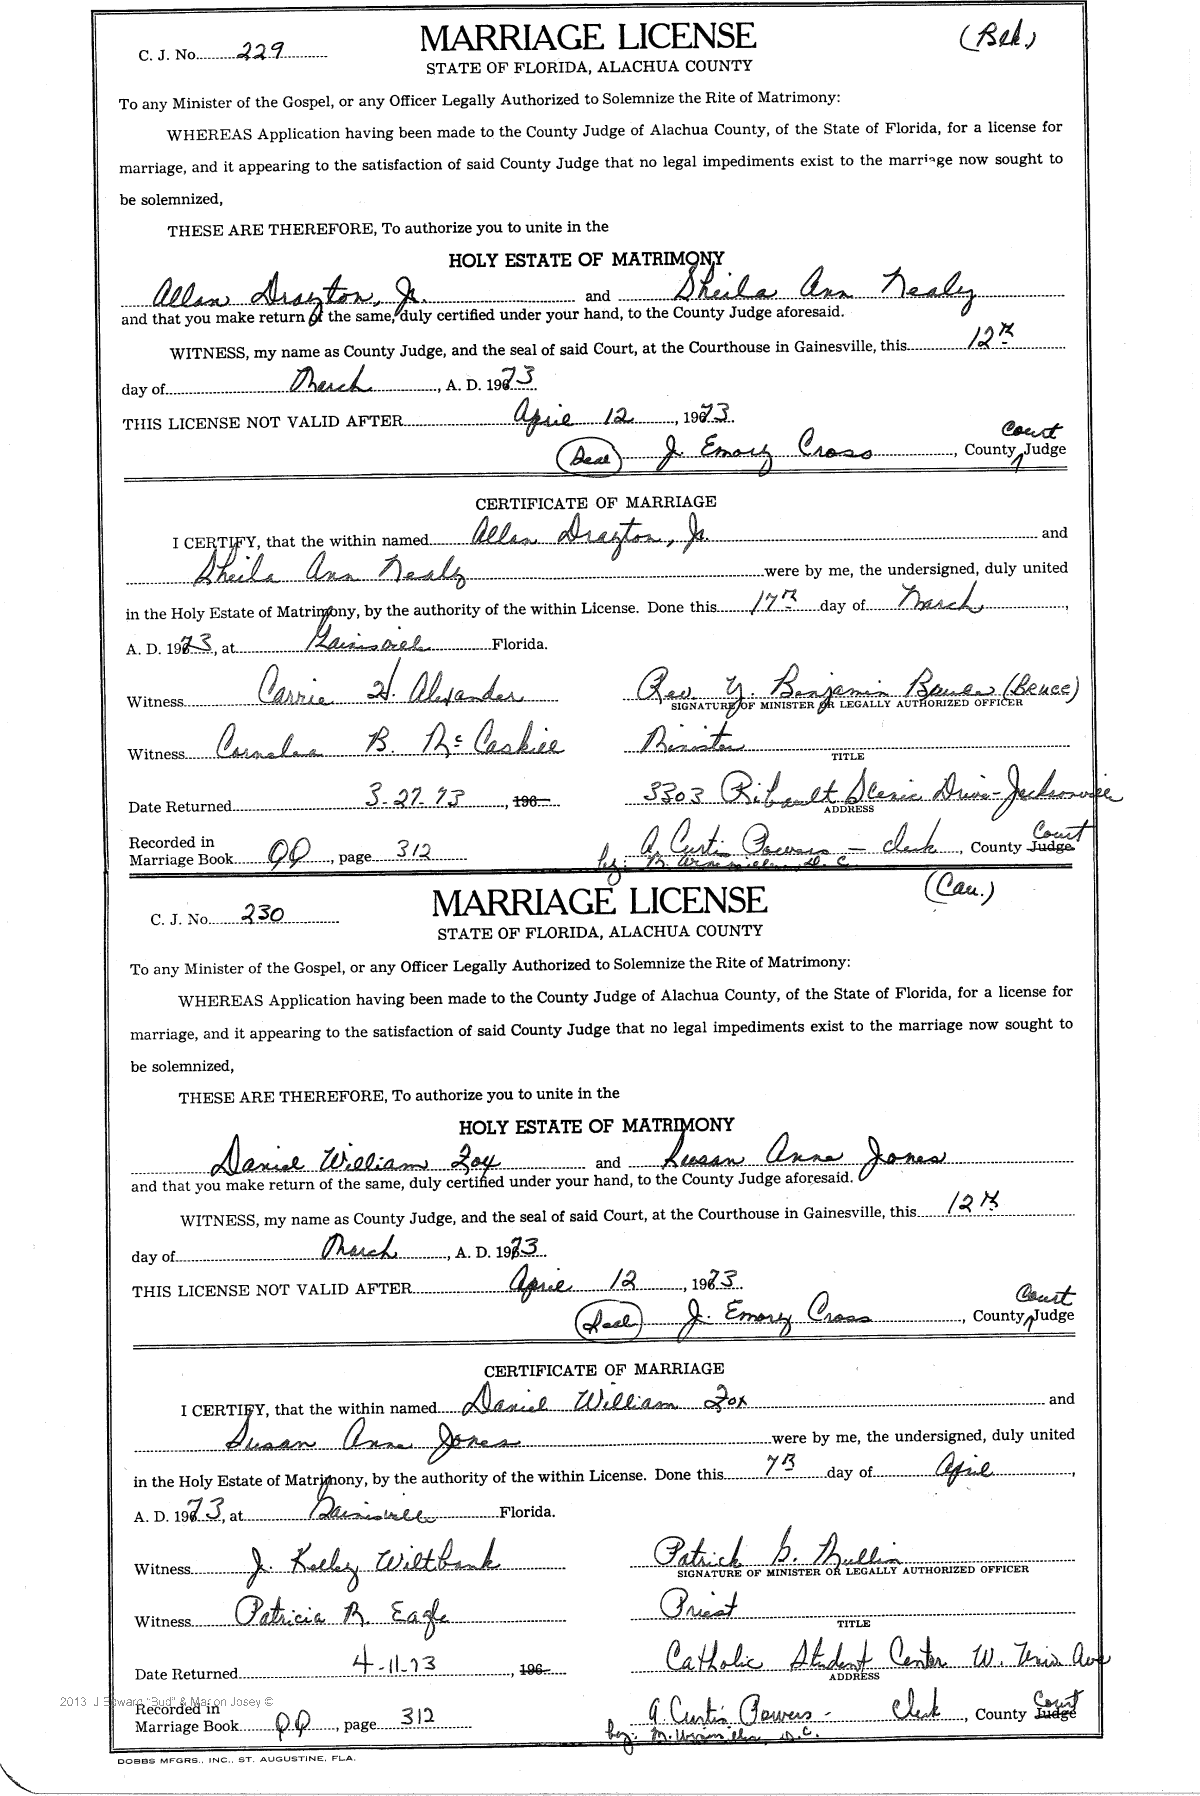 C. J. No. 229 MARRIAGE LICENSE (Blk.)
STATE OF FLORIDA, ALACHUA COUNTY
To any Minister of the Gospel, or any Officer Legally Authorized to Solemnize the Rite of Matrimony:
WHEREAS Application having been made to the County Judge of Alachua County, of the State of Florida, for a license for
marriage, and it appearing to the satisfaction of said County Judge that no legal impediments exist to the marriage now sought to
be solemnized,
THESE ARE THEREFORE, To authorize you to unite in the
HOLY ESTATE OF MATRIMONY
Allan Drayton, Jr. and Sheila Ann Nealy
and that you make return of the same, duly certified under your hand, to the County Judge aforesaid.
WITNESS, my name as County Judge, and the seal of said Court, at the Courthouse in Gainesville, this 12th
day of March, A. D. 1973
THIS LICENSE NOT VALID AFTER April 12, 1973.
(Seal) J. Emory Cross, County Court Judge
CERTIFICATE OF MARRIAGE
I CERTIFY, that the within named Allan Drayton, Jr. and
Sheila Ann Nealy were by me, the undersigned, duly united
in the Holy Estate of Matrimony, by the authority of the within License. Done this 17th day of March,
A. D. 1973, at Gainesville Florida.
Witness Carrie H. Alexander Rev. Y. Benjamin Bruce (Bruce)
SIGNATURE OF MINISTER OR LEGALLY AUTHORIZED OFFICER
Witness Cornelia B. McCaskill Minister
TITLE
Date Returned 3-27-73, 196 3303 Ribault Scenic Drive-Jacksonville
ADDRESS
Recorded in
Marriage Book QQ, page 312 A. Curtis Powers - Clerk, County Judge Court
by: D.C.
C. J. No. 230 MARRIAGE LICENSE (Cau.)
STATE OF FLORIDA, ALACHUA COUNTY
To any Minister of the Gospel, or any Officer Legally Authorized to Solemnize the Rite of Matrimony:
WHEREAS Application having been made to the County Judge of Alachua County, of the State of Florida, for a license for
marriage, and it appearing to the satisfaction of said County Judge that no legal impediments exist to the marriage now sought to
be solemnized,
THESE ARE THEREFORE, To authorize you to unite in the
HOLY ESTATE OF MATRIMONY
Daniel William Fox and Susan Anne Jones
and that you make return of the same, duly certified under your hand, to the County Judge aforesaid.
WITNESS, my name as County Judge, and the seal of said Court, at the Courthouse in Gainesville, this 12th
day of March, A. D. 1973
THIS LICENSE NOT VALID AFTER April 12, 1973
(Seal) J. Emory Cross, County Court Judge
CERTIFICATE OF MARRIAGE
I CERTIFY, that the within named Daniel William Fox and
Susan Anne Jones were by me, the undersigned, duly united
in the Holy Estate of Matrimony, by the authority of the within License. Done this 7th day of April,
A. D. 1973, at Gainesville Florida.
Witness J. Kelley Wiltbank Patrick G. Mullin
SIGNATURE OF MINISTER OR LEGALLY AUTHORIZED OFFICER
Witness Patricia R. Eagle Priest
TITLE
Date Returned 4-11-73, 196 Catholic Student Center W. Univ Ave
ADDRESS
2013 J Edward "Bud" & Marion Josey ©
Recorded in
Marriage Book QQ, page 312 A. Curtis Powers - Clerk, County Judge Court
by: D.C.
DOBBS MFGRS., INC., ST. AUGUSTINE, FLA.